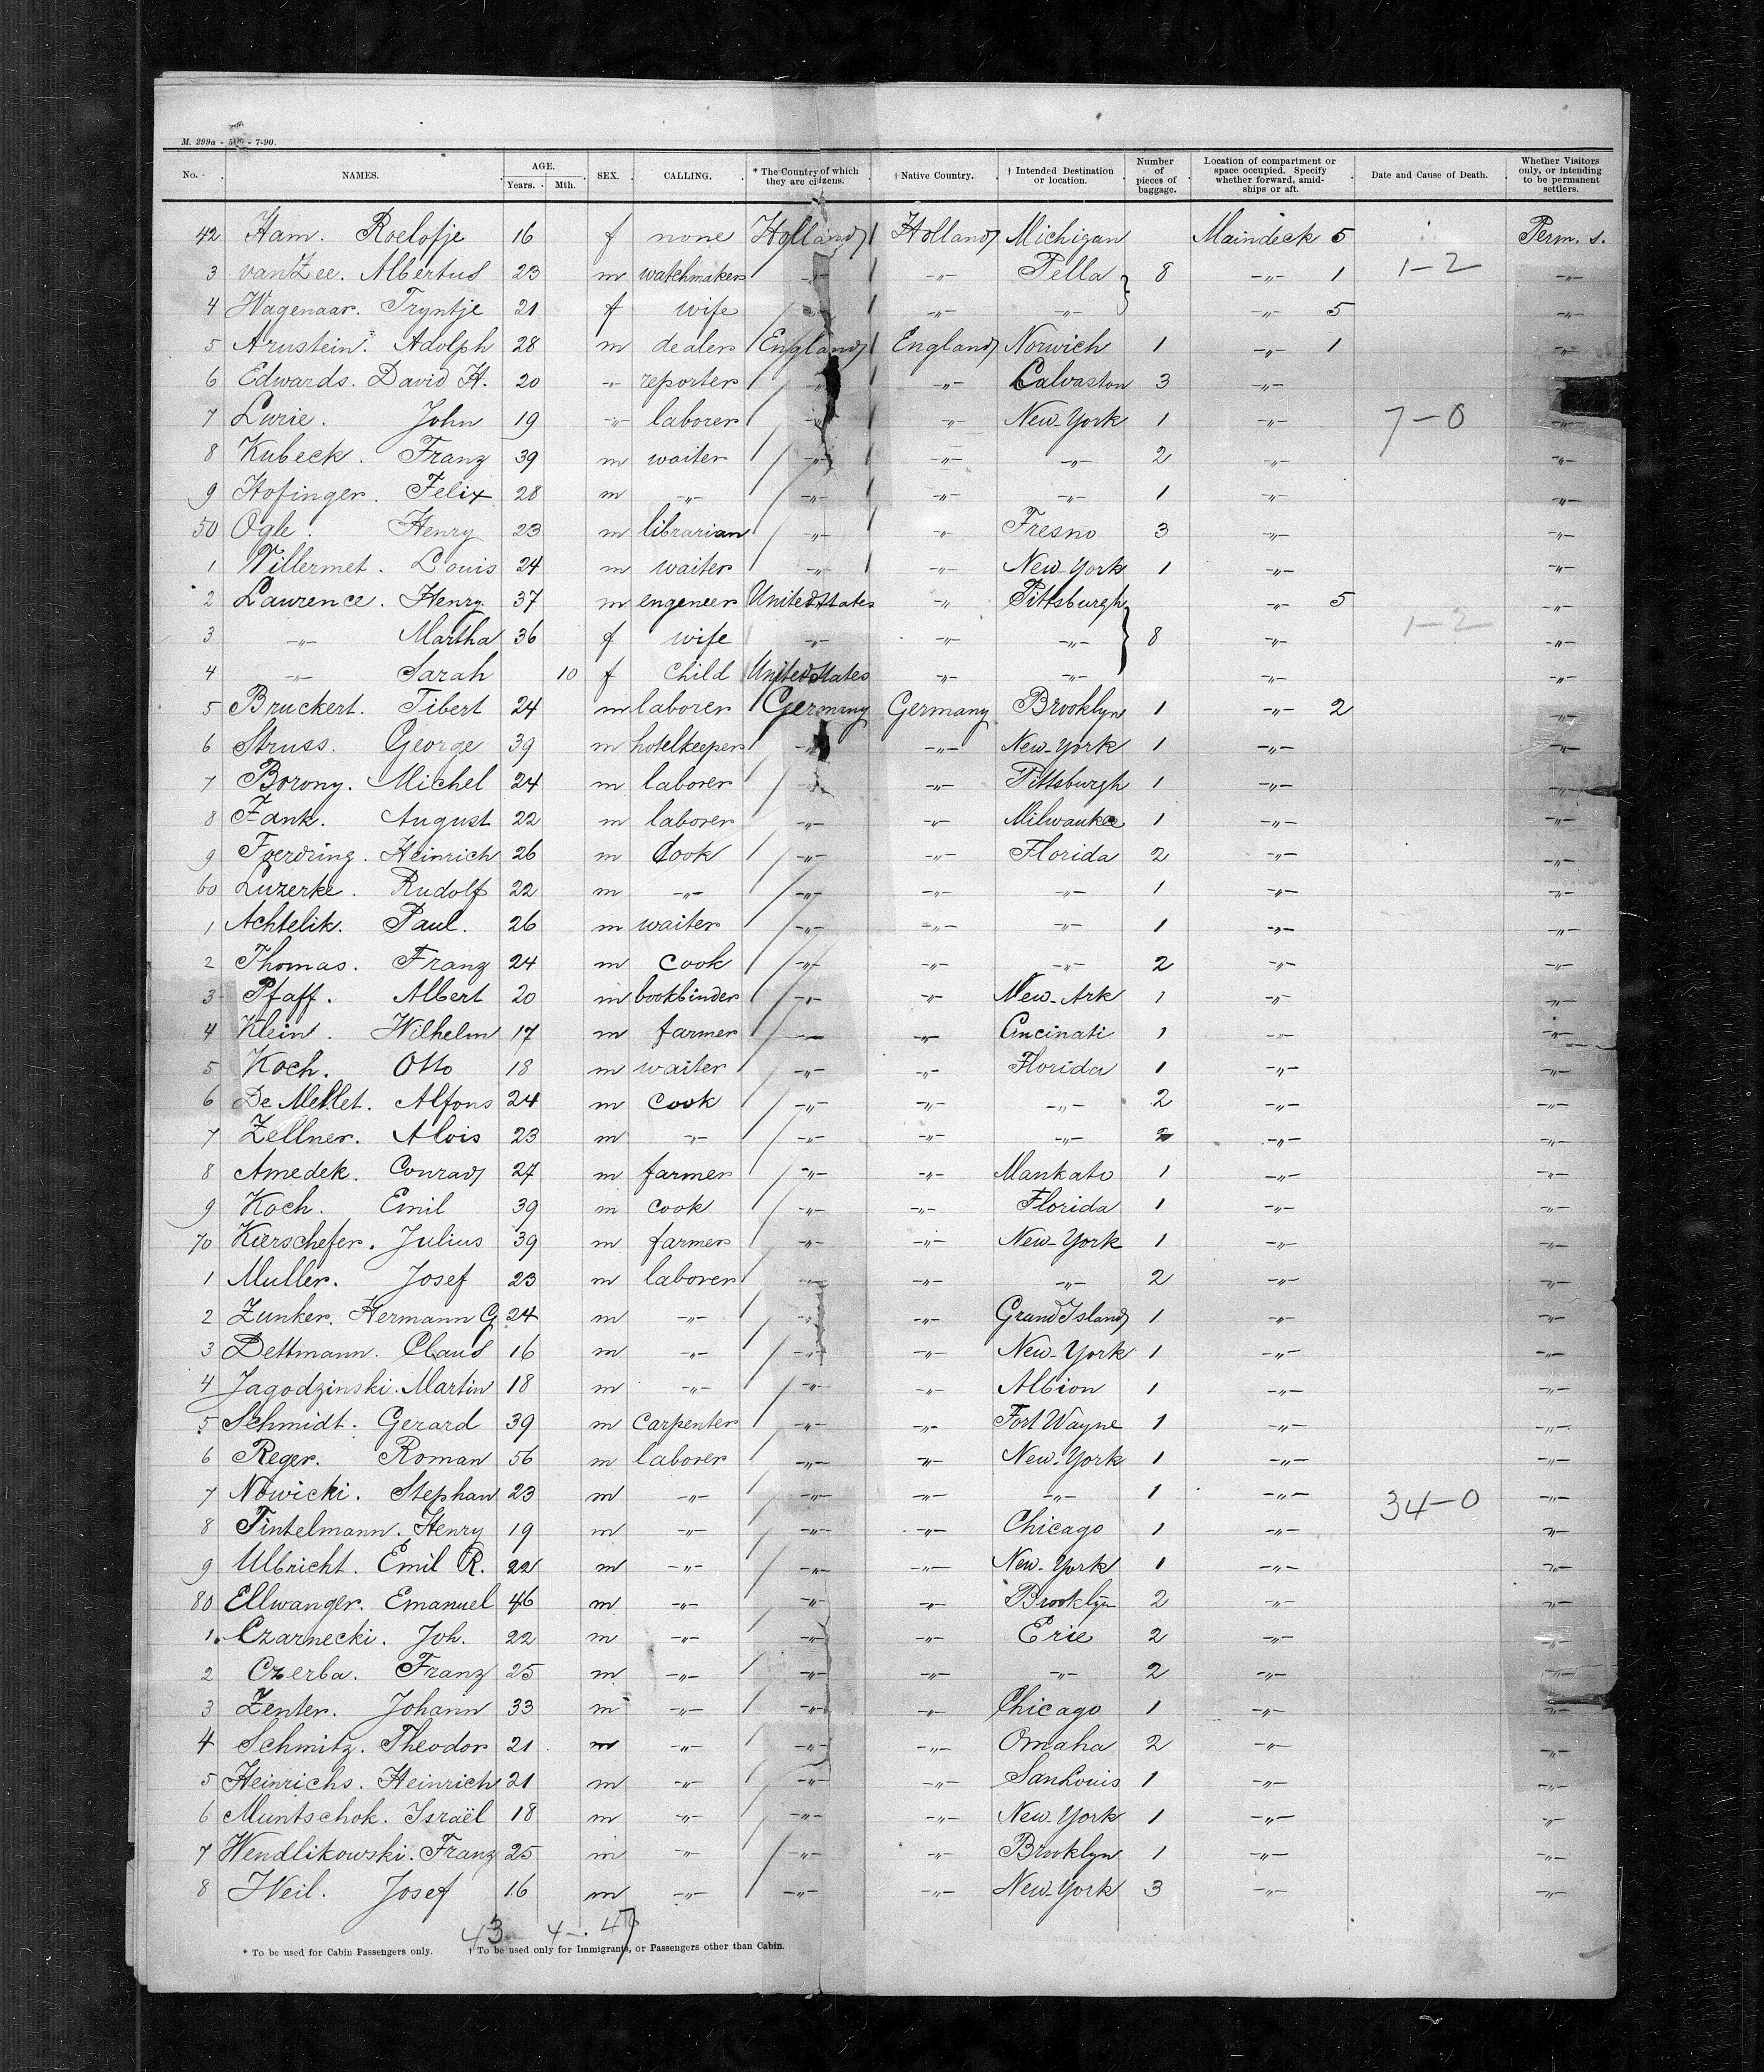 M. 299a - 500 - 7-90.
No. NAMES. AGE. Years. Mth. SEX. CALLING. * The Country of which they are citizens. † Native Country. † Intended Destination or location. Number of pieces of baggage. Location of compartment or space occupied. Specify whether forward, amidships or aft. Date and Cause of Death. Whether Visitors only, or intending to be permanent settlers.
42 Ham. Roelofje 16 f none Holland Holland Michigan Maindeck 5 Perm. s.
3 vanZee. Albertus 23 m watchmaker -"- -"- Pella 8 -"- 1 1-2 -"-
4 Wagenaar. Tryntje 21 f wife -"- -"- -"- -"- 5 -"-
5 Arnstein. Adolph 28 m dealer England England Norwich 1 -"- 1 -"-
6 Edwards. David H. 20 -"- reporter -"- -"- Calvaston 3 -"-
7 Lurie. John 19 -"- laborer -"- -"- New-York 1 -"- 7-0 -"-
8 Kubeck. Franz 39 m waiter -"- -"- -"- 2 -"- -"-
9 Hofinger. Felix 28 m -"- -"- -"- -"- 1 -"- -"-
50 Ogle. Henry 23 m librarian -"- -"- Fresno 3 -"- -"-
1 Villermet. Louis 24 m waiter -"- -"- New-York 1 -"- -"-
2 Laurence. Henry 37 m engeneer United States -"- Pittsburgh -"- 5 -"-
3 -"- Martha 36 f wife -"- -"- -"- 8 -"- 1-2 -"-
4 -"- Sarah 10 f child United States -"- -"- -"- -"-
5 Bruckert. Tibert 24 m laborer Germany Germany Brooklyn 1 -"- 2 -"-
6 Struss. George 39 m hotelkeeper -"- -"- New-York 1 -"- -"-
7 Borony. Michel 24 m laborer -"- -"- Pittsburgh 1 -"- -"-
8 Zank. August 22 m laborer -"- -"- Milwaukee 1 -"- -"-
9 Foerdring. Heinrich 26 m Cook -"- -"- Florida 2 -"- -"-
60 Luzerke. Rudolf 22 m -"- -"- -"- -"- 1 -"- -"-
1 Achtelik. Paul. 26 m waiter -"- -"- -"- 1 -"- -"-
2 Thomas. Franz 24 m cook -"- -"- -"- 2 -"- -"-
3 Pfaff. Albert 20 m bookbinder -"- -"- New-Ark 1 -"- -"-
4 Klein. Wilhelm 17 m farmer -"- -"- Cincinati 1 -"- -"-
5 Koch. Otto 18 m waiter -"- -"- Florida 1 -"- -"-
6 De Mellet. Alfons 24 m cook -"- -"- -"- 2 -"- -"-
7 Zellner. Alois 23 m -"- -"- -"- -"- 2 -"- -"-
8 Amedek. Conrad 27 m farmer -"- -"- Mankato 1 -"- -"-
9 Koch. Emil 39 m cook -"- -"- Florida 1 -"- -"-
70 Kærschefer. Julius 39 m farmer -"- -"- New-York 1 -"- -"-
1 Muller. Josef 23 m laborer -"- -"- -"- 2 -"- -"-
2 Zunker. Hermann G 24 m -"- -"- -"- Grand Island 1 -"- -"-
3 Dettmann. Claus 16 m -"- -"- -"- New-York 1 -"- -"-
4 Jagodzinski. Martin 18 m -"- -"- -"- Albion 1 -"- -"-
5 Schmidt. Gerard 39 m carpenter -"- -"- Fort Wayne 1 -"- -"-
6 Reger. Roman 56 m laborer -"- -"- New-York 1 -"- -"-
7 Nowicki. Stephan 23 m -"- -"- -"- -"- 1 -"- 34-0 -"-
8 Tintelmann. Henry 19 m -"- -"- -"- Chicago 1 -"- -"-
9 Ulbricht. Emil R. 22 m -"- -"- -"- New-York 1 -"- -"-
80 Ellwanger. Emanuel 46 m -"- -"- -"- Brooklyn 2 -"- -"-
1 Czarnecki. Joh. 22 m -"- -"- -"- Erie 2 -"- -"-
2 Czerba. Franz 25 m -"- -"- -"- -"- 2 -"- -"-
3 Zenter. Johann 33 m -"- -"- -"- Chicago 1 -"- -"-
4 Schmitz. Theodor 21 m -"- -"- -"- Omaha 2 -"- -"-
5 Heinrichs. Heinrich 21 m -"- -"- -"- San Louis 1 -"- -"-
6 Muntschok. Israël 18 m -"- -"- -"- New-York 1 -"- -"-
7 Wendlikowski. Franz 25 m -"- -"- -"- Brooklyn 1 -"- -"-
8 Weil. Josef 16 m -"- -"- -"- New-York 3 -"- -"-
43 4 - 47
* To be used for Cabin Passengers only. † To be used only for Immigrants, or Passengers other than Cabin.